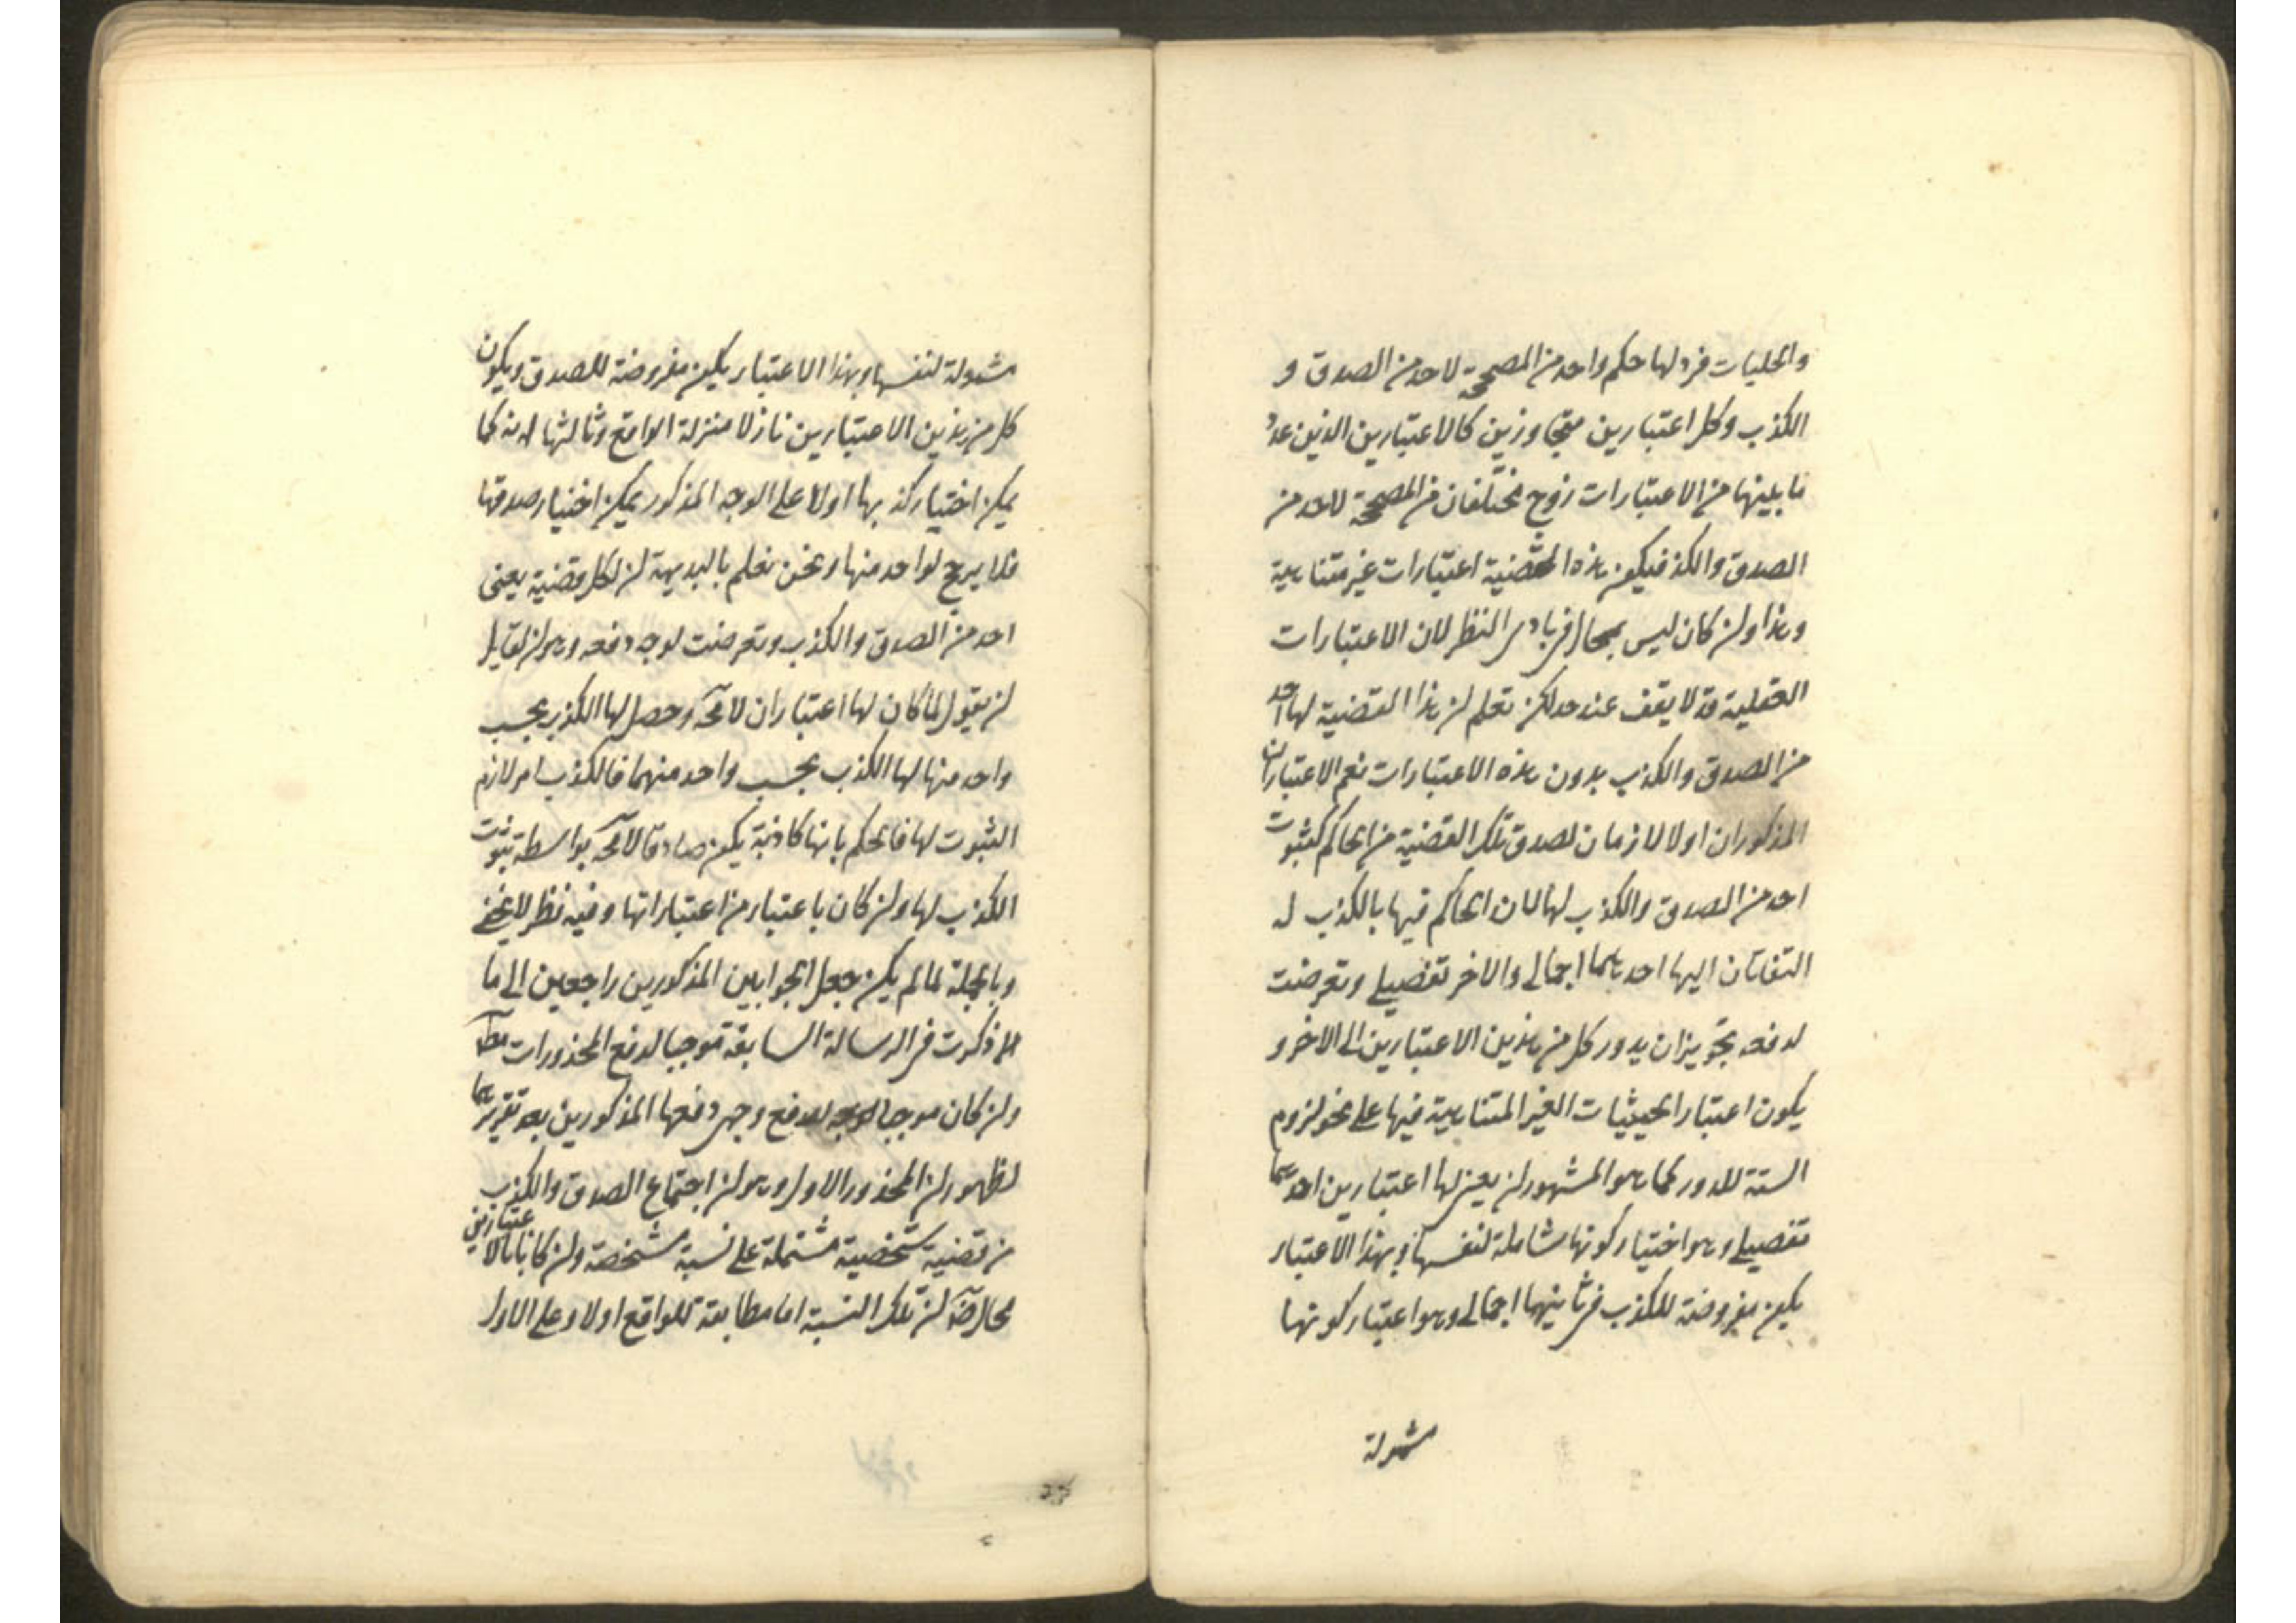 والحليات فرد لها حكم واحد من المصححة لاحد من الصدق و
الكذب وكل اعتبارين متجاوزين كالاعتبارين الذين عد
نا بلينها من الاعتبارات زوج تختلفان من المصححة لاحد من
الصدق والكذ فيكون هذه القضية اعتبارات غير متناهية
وهذا ولن كان ليس بمحال في بادى النظر لان الاعتبارات
العقلية قد لا يقف عند حد لكن نعلم لن هذا القضية لها احد
من الصدق والكذب بدون هذه الاعتبارات نعم الاعتباران
المذكوران اولا لازمان لصدق تلك القضية من الحاكم كثبوت
احد من الصدق والكذب لها لان الحاكم فيها بالكذب له
التفاتان اليها احدهما اجمالى والاخر تفصيلى وتعرضت
لدفعه بتجويزان يدور كل من هذين الاعتبارين الى الاخر و
يكون اعتبار الحيثيات الغير المتناهية فيها على نحو لزوم
الستة للدور كما هو المشهور لن يعنى لها اعتبارين احدهما
تفصيلى وهو اختيار كونها شاملة لنفسها وبهذا الاعتبار
يكون مفروضة للكذب فى ثانيهما اجمالى وهو اعتبار كونها
مشمولة
مشمولة لنفسها وبهذا الاعتبار يكون مفروضة للصدق ويكون
كل من هذين الاعتبارين نازلا منزلة الواقع وثالثها انه كما
يمكن اختيار كذبها اولا على الوجه المذكور يمكن اختيار صدقها
فلا يرجح لواحد منها ونحن نعلم بالبديهة لن لكل قضية يعنى
احد من الصدق والكذب وتعرضت لوجه دفعه وهو لن لقايل
لن يقول لما كان لها اعتباران لامحة وحصل لها الكذب بحسب
واحد منها لها الكذب بحسب واحد منهما فالكذب امر لازم
الثبوت لها فالحكم بانها كاذبة يكون صادقا لامحة بواسطة ثبوت
الكذب لها ولن كان باعتبار من اعتباراتها وفيه نظر لا يخفى
وبالجملة لما لم يكن جعل الجوابين المذكورين راجعين الى ما
ذكرت فى الرسالة السابقة موجبا لدفع المحذورات
ولن كان موجبا لدفع وجهى دفعها المذكورين بعد تقريرهما
لظهور لن المحذور الاول وهو لن اجتماع الصدق والكذب
من قضية شخصية مشتملة على نسبة مشخصة ولن كانا بالاعتبارين
محال لن تلك النسبة اما مطابقة للواقع اولا وعلى الاول